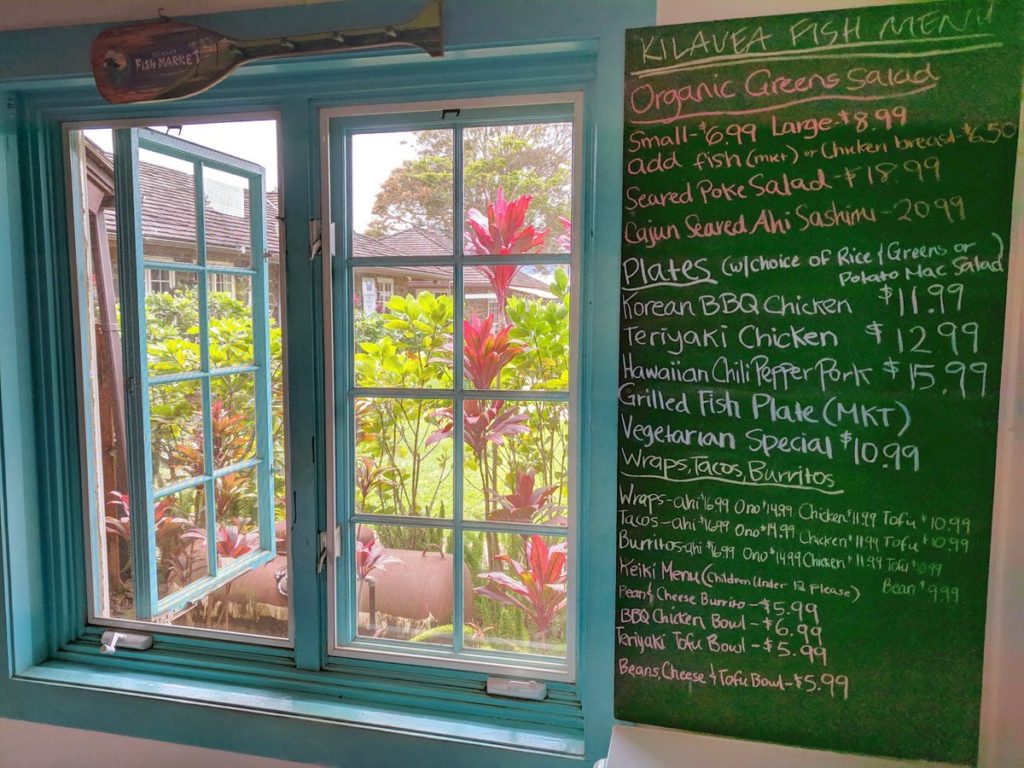 FISH MARKET
KILAUEA FISH MENU
Organic Greens Salad
Small-$6.99 Large-$8.99
add fish (mkt) or Chicken breast-$6.50
Seared Poke Salad-$18.99
Cajun Seared Ahi Sashimi-20.99
Plates (w/choice of Rice & Greens or
Potato Mac Salad)
Korean BBQ Chicken $11.99
Teriyaki Chicken $12.99
Hawaiian Chili Pepper Pork $15.99
Grilled Fish Plate (MKT)
Vegetarian Special $10.99
Wraps, Tacos, Burritos
Wraps-ahi $16.99 Ono $14.99 Chicken $11.99 Tofu $10.99
Tacos-ahi $16.99 Ono $14.99 Chicken $11.99 Tofu $10.99
Burritos-ahi $16.99 Ono $14.99 Chicken $11.99 Tofu $10.99
Bean $9.99
Keiki Menu (Children Under 12 Please)
Bean & Cheese Burrito-$5.99
BBQ Chicken Bowl-$6.99
Teriyaki Tofu Bowl-$5.99
Beans, Cheese & Tofu Bowl-$5.99